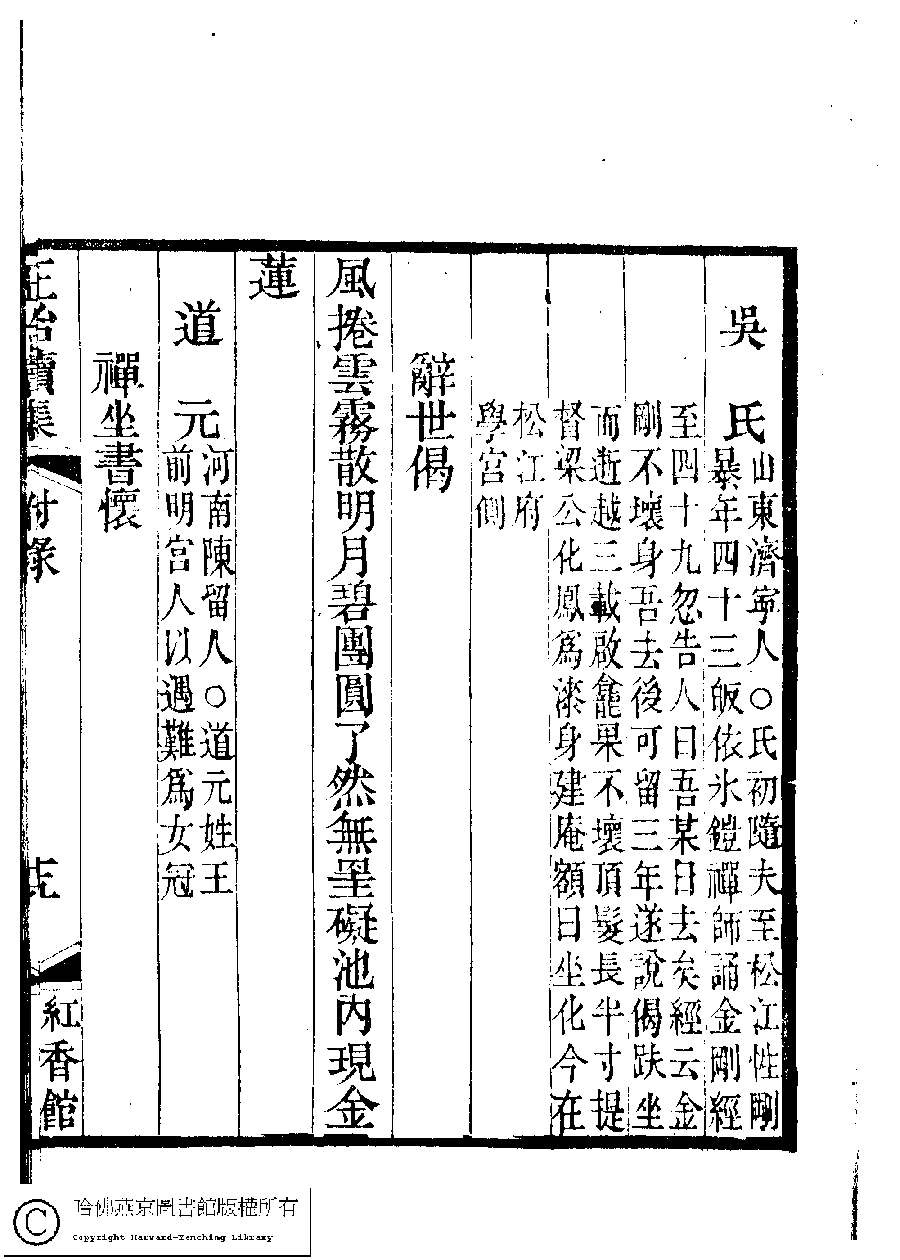 吳　氏
山東濟寧人○氏初隨夫至松江性剛
暴年四十三皈依氷鎧禪師誦金剛經
至四十九忽告人曰吾某日去矣經云金
剛不壞身吾去後可留三年遂說偈趺坐
而逝越三載啟龕果不壞頂髮長半寸提
督梁公化鳳爲漆身建庵額曰坐化今在
松江府
學宮側
辭世偈
風捲雲霧散明月碧團圓了然無罣礙池內現金
蓮
道　元
河南陳留人○道元姓王
前明宮人以遇難爲女冠
禪坐書懷
正始續集
附錄
紅香館
哈佛燕京圖書館版權所有
Copyright Harvard-Yenching Library